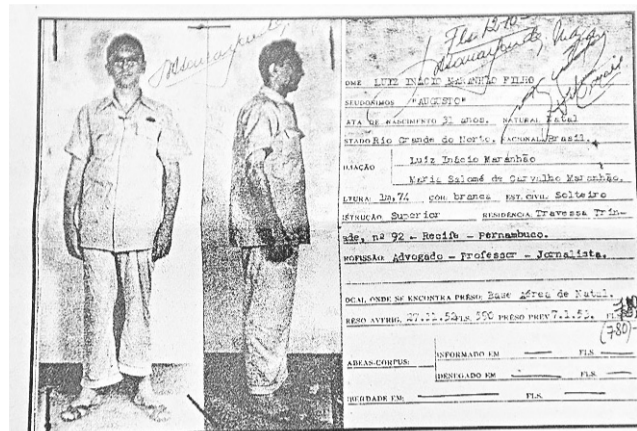 Fls 12-10-
OME LUIZ INÁCIO MARANHÃO FILHO
SEUDÔNIMOS "AUGUSTO"
ATA DE NASCIMENTO 31 anos. NATURAL Natal
STADO Rio Grande do Norte, NACIONAL Brasil.
ILIAÇÃO Luiz Inácio Maranhão
Maria Salomé de Carvalho Maranhão.
LTURA: 1m,74 CÔR: branca EST. CIVIL Solteiro
STRUÇÃO Superior RESIDÊNCIA Travessa Trin-
ade, nº 92 - Recife - Pernambuco.
ROFISSÃO: Advogado - Professor - Jornalista.
OCAL ONDE SE ENCONTRA PRÊSO: Base Aérea de Natal.
RÊSO AVERIG. 27.11.52 FLS. 590 PRÊSO PREV 7.1.53. FL
(780)-
ABEAS-CORPUS: INFORMADO EM FLS.
DENEGADO EM FLS.
IBERDADE EM: FLS.